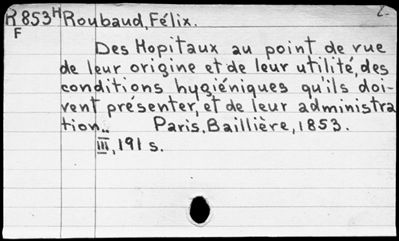 R 853 H Roubaud, Félix. 2.
F
Des Hopitaux au point de vue
de leur origine et de leur utilité, des
conditions hygiéniques qu'ils doi-
vent présenter, et de leur administra
tion.. Paris, Baillière, 1853.
III, 191 s.